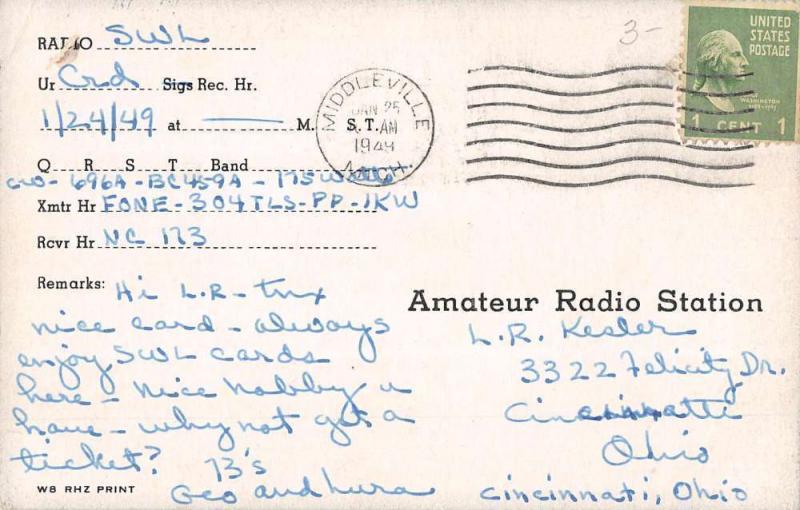 RADIO SWL
Ur Crd Sigs Rec. Hr.
1/24/49 at — M. S. T.
Q R S T Band
CW - 696A - BC459A - 175W
Xmtr Hr FONE - 304TLS - PP - 1KW
Rcvr Hr NC 173
Remarks: Hi L.R - tnx
nice card - always
enjoy SWL cards
here - nice hobby u
have - why not get a
ticket? 73's
Geo and Lura
W8 RHZ PRINT
3-
MIDDLEVILLE
JAN 25
AM
1949
MICH.
UNITED
STATES
POSTAGE
WASHINGTON
1 CENT 1
Amateur Radio Station
L.R. Kesler
3322 Felicity Dr.
Cincinnatti
Ohio
Cincinnati, Ohio